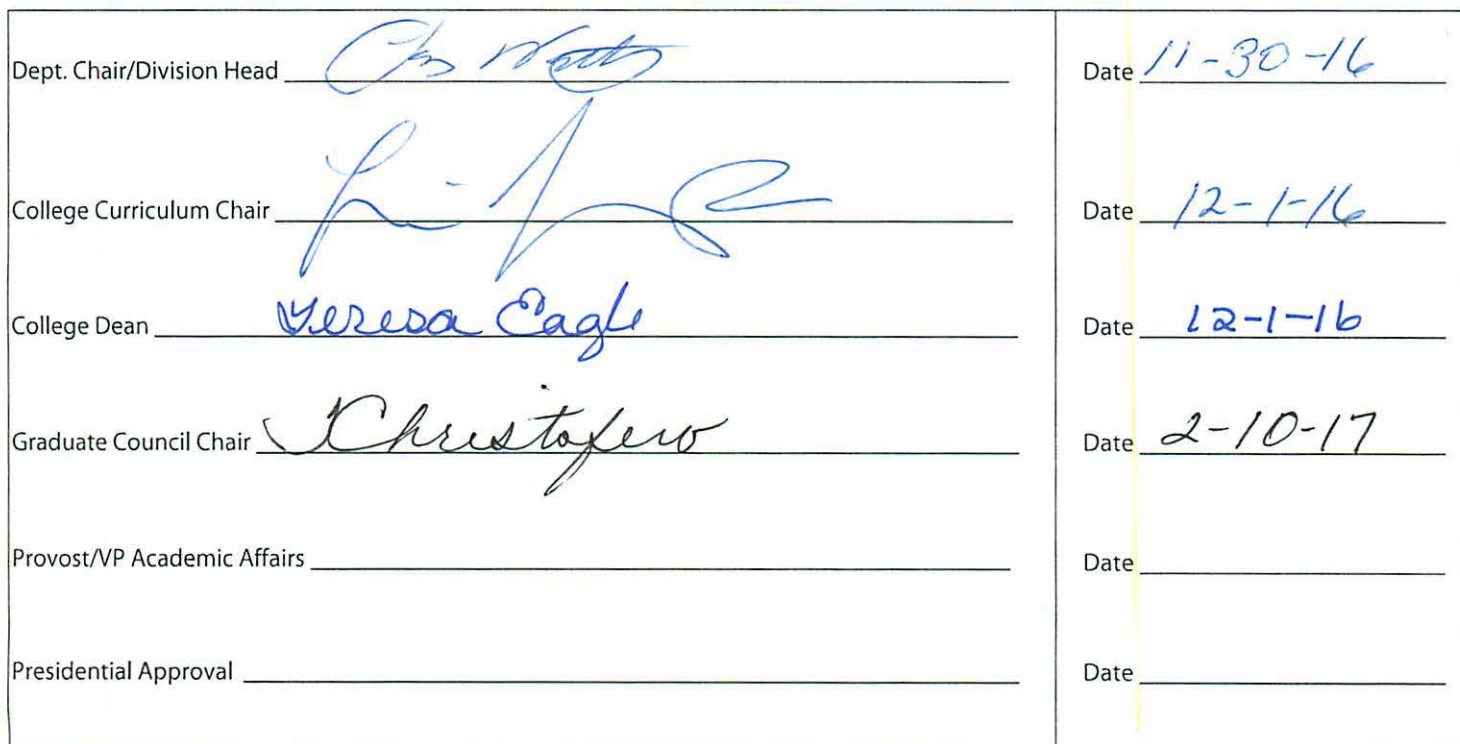 Dept. Chair/Division Head Date 11-30-16
College Curriculum Chair Date 12-1-16
College Dean Teresa Eagle Date 12-1-16
Graduate Council Chair Christofero Date 2-10-17
Provost/VP Academic Affairs Date
Presidential Approval Date